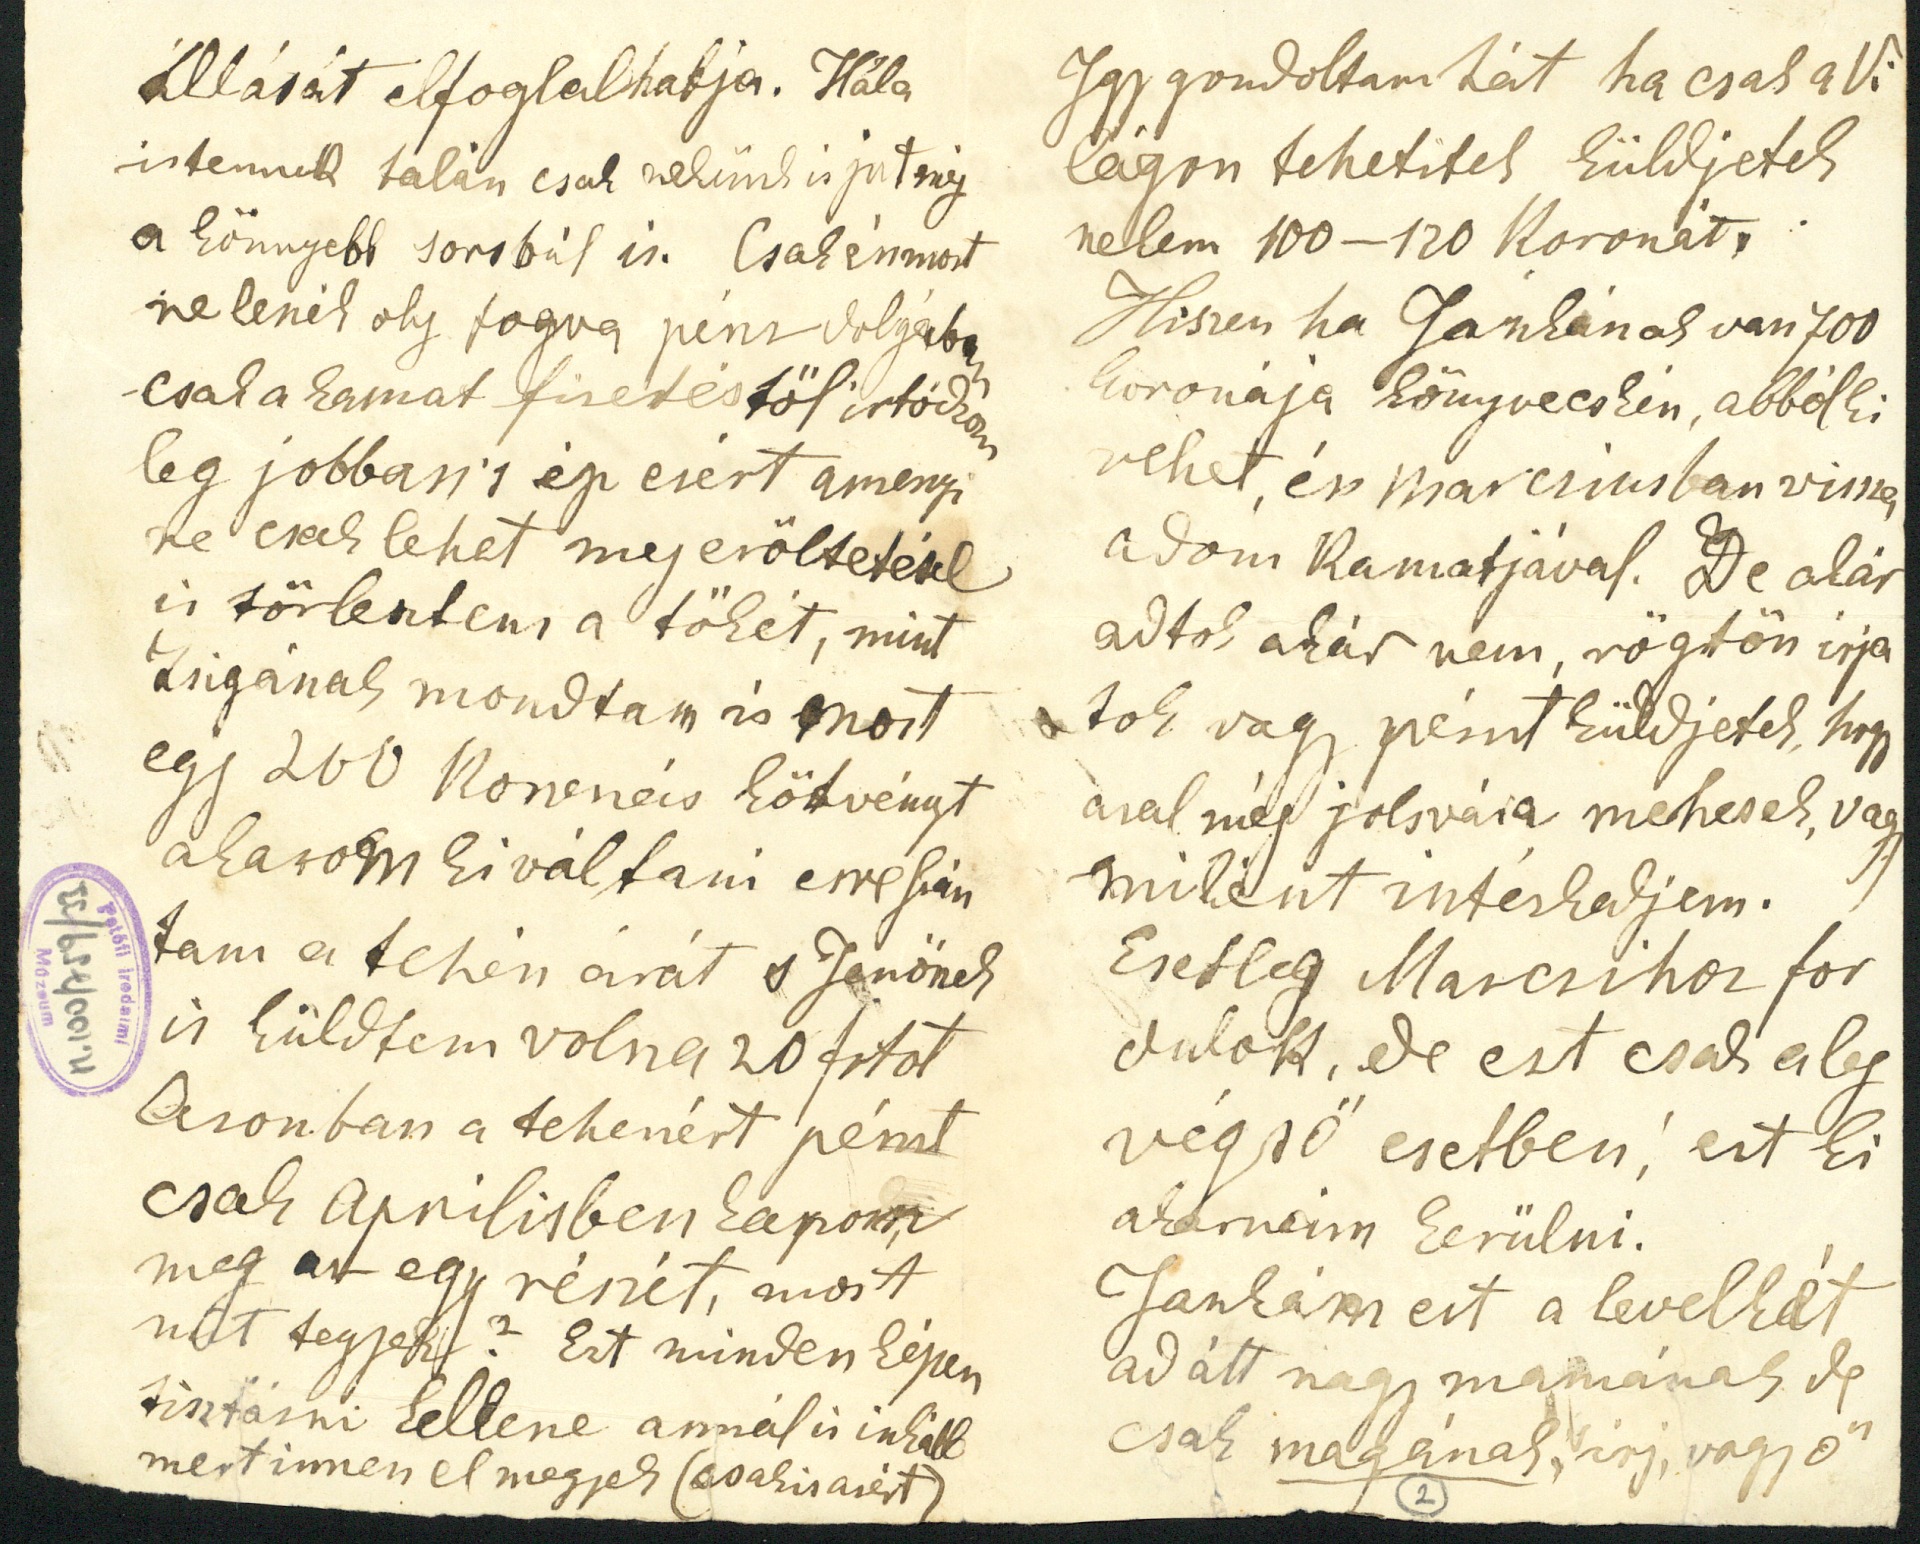 Állását elfoglalhatja. Hála
istennek talán csak nekünk is jut még
a könnyebb sorsbúl is. Csak én most
ne lenék oly fogva pénz dolgában
csak a kamat fizetéstöl irtódzom
leg jobban 's ép ezért amenyi
re csak lehet meg eröltetésel
is törlesztem a tökét, mint
Zsigának mondtam is most
egy 200 Koronás kötvényt
akarom kiváltani erre szán
tam a tehén árát s Jenönek
is küldtem volna 20 frtot
Azonban a tehenért pénzt
csak Aprilisben kapom,
meg az egy részét, most
mit tegyek? Ezt minden képen
tisztázni kellene annál is inkább
mert innen el megyek (csak is azért)
Petőfi Irodalmi
Múzeum
Igy gondoltam hát ha csak a Vi
lágon tehetitek küldjetek
nekem 100–120 Koronát.
Hiszen ha Jankának van 700
koronája könyvecskén, abból ki
vehet, én Marcziusban vissza
adom Kamatjával. De akár
adtok akár nem, rögtön irja
tok vagy pénzt küldjetek, hogy
azal még jolsvára mehesek, vagy
miként intézkedjem.
Esetleg Marcsihoz for
dulok, de ezt csak a leg
végsö esetben, ezt ki
akarnám kerülni.
Jankám ezt a levelkét
ad átt nagy mamának de
csak magának, irj, vagy ö
2